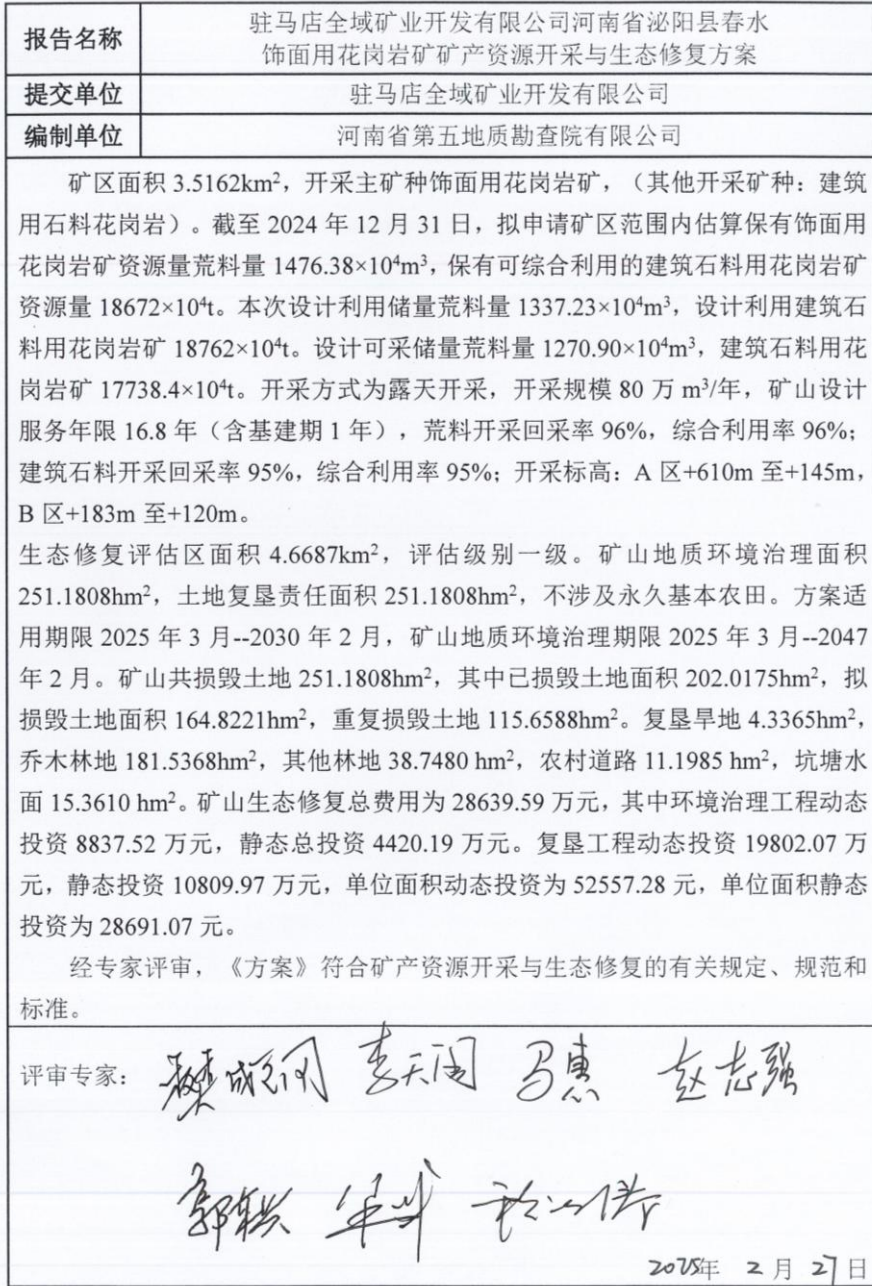 报告名称
驻马店全域矿业开发有限公司河南省泌阳县春水
饰面用花岗岩矿矿产资源开采与生态修复方案
提交单位
驻马店全域矿业开发有限公司
编制单位
河南省第五地质勘查院有限公司
矿区面积 3.5162km²，开采主矿种饰面用花岗岩矿，（其他开采矿种：建筑
用石料花岗岩）。截至 2024 年 12 月 31 日，拟申请矿区范围内估算保有饰面用
花岗岩矿资源量荒料量 1476.38×10⁴m³，保有可综合利用的建筑石料用花岗岩矿
资源量 18672×10⁴t。本次设计利用储量荒料量 1337.23×10⁴m³，设计利用建筑石
料用花岗岩矿 18762×10⁴t。设计可采储量荒料量 1270.90×10⁴m³，建筑石料用花
岗岩矿 17738.4×10⁴t。开采方式为露天开采，开采规模 80 万 m³/年，矿山设计
服务年限 16.8 年（含基建期 1 年），荒料开采回采率 96%，综合利用率 96%；
建筑石料开采回采率 95%，综合利用率 95%；开采标高：A 区+610m 至+145m，
B 区+183m 至+120m。
生态修复评估区面积 4.6687km²，评估级别一级。矿山地质环境治理面积
251.1808hm²，土地复垦责任面积 251.1808hm²，不涉及永久基本农田。方案适
用期限 2025 年 3 月--2030 年 2 月，矿山地质环境治理期限 2025 年 3 月--2047
年 2 月。矿山共损毁土地 251.1808hm²，其中已损毁土地面积 202.0175hm²，拟
损毁土地面积 164.8221hm²，重复损毁土地 115.6588hm²。复垦旱地 4.3365hm²，
乔木林地 181.5368hm²，其他林地 38.7480 hm²，农村道路 11.1985 hm²，坑塘水
面 15.3610 hm²。矿山生态修复总费用为 28639.59 万元，其中环境治理工程动态
投资 8837.52 万元，静态总投资 4420.19 万元。复垦工程动态投资 19802.07 万
元，静态投资 10809.97 万元，单位面积动态投资为 52557.28 元，单位面积静态
投资为 28691.07 元。
经专家评审，《方案》符合矿产资源开采与生态修复的有关规定、规范和
标准。
评审专家：
马惠 赵志强
2025年 2 月 27 日